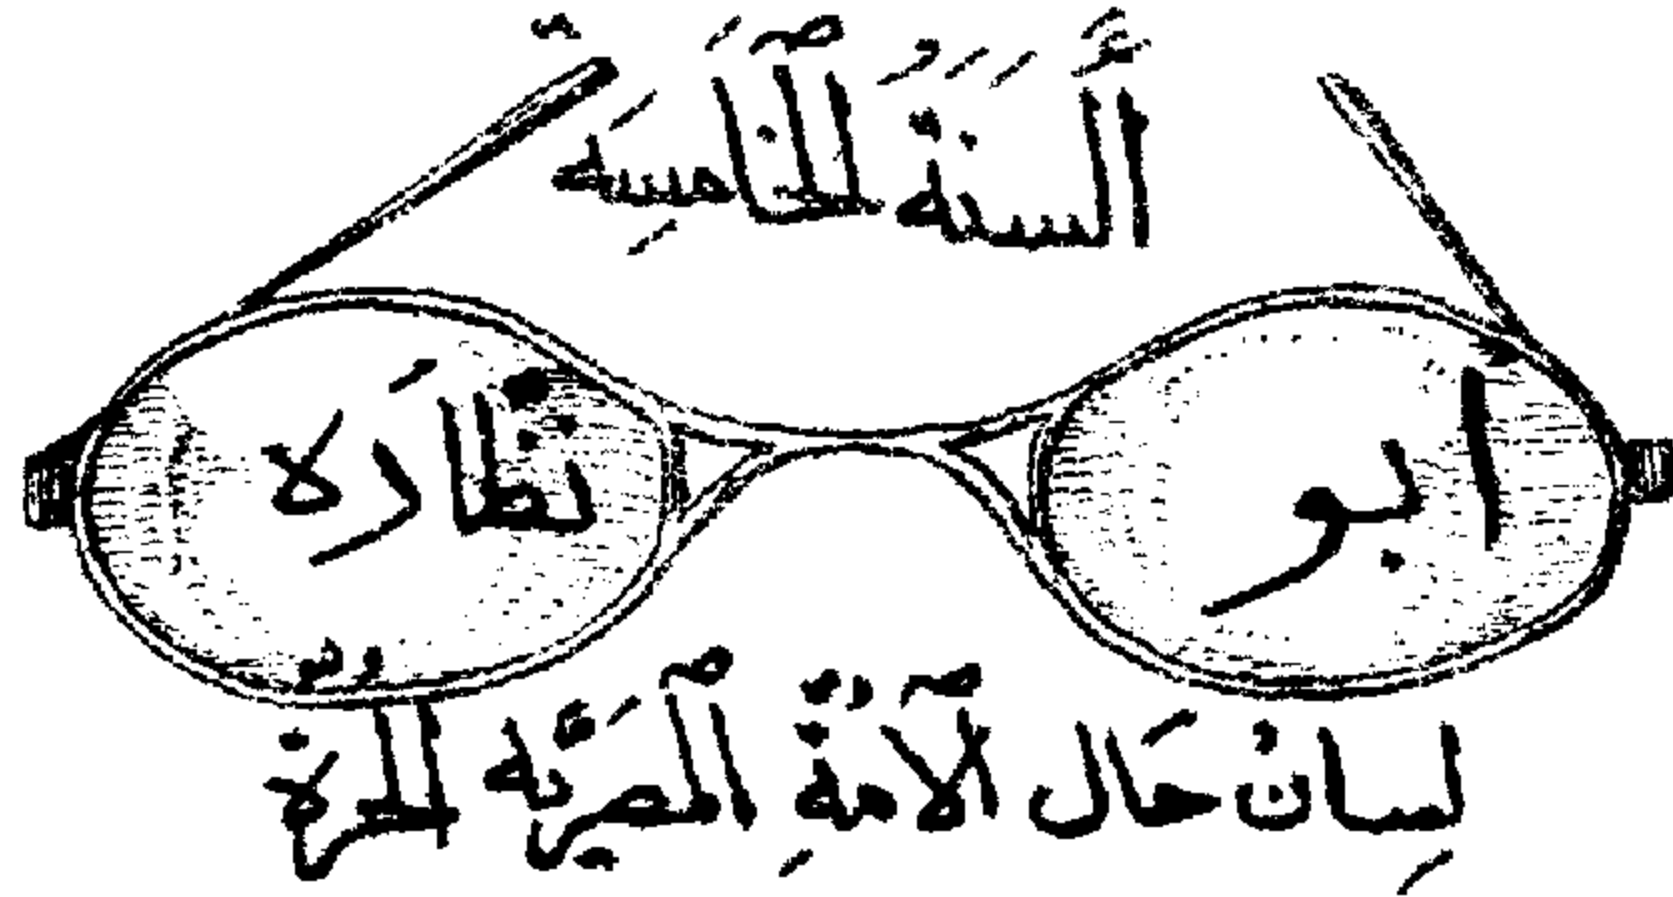 أَلسَنَةُ ٱلخَامِسِة
ابو نظَارَه
لِسانْ حَال ٱلآمةِ ٱلمصرَيّه الحرة